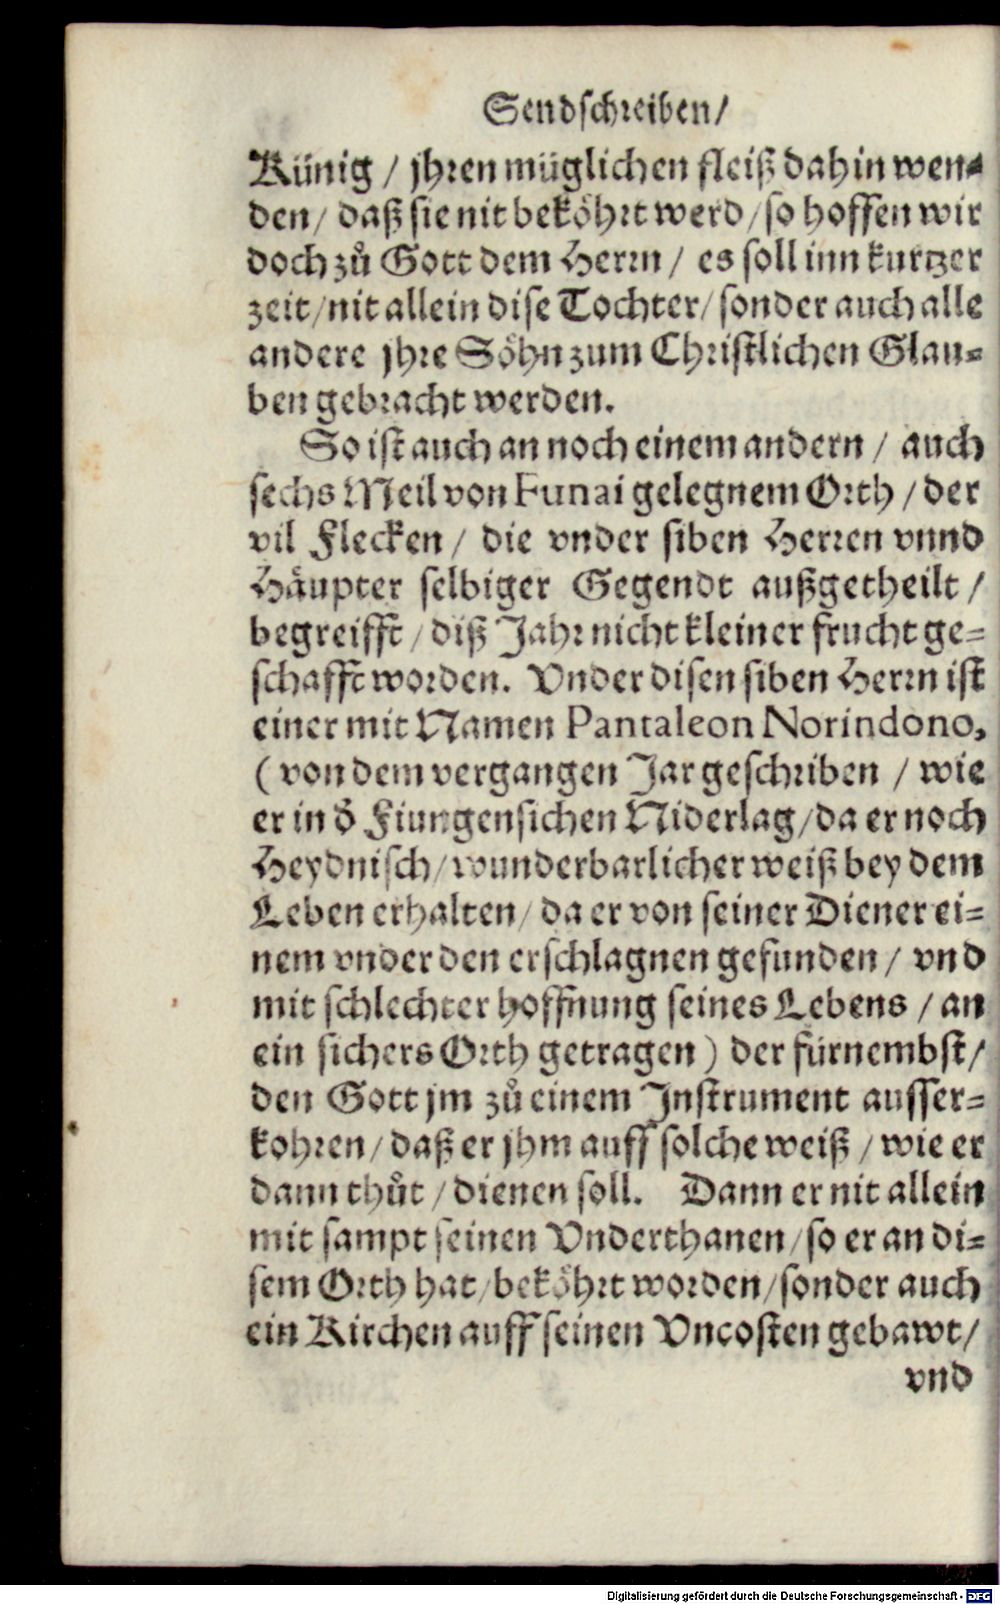 Sendschreiben/
Künig / jhren müglichen fleiß dahin wen⸗
den/ daß sie nit beköhrt werd/so hoffen wir
doch zů Gott dem Herrn / es soll inn kurtzer
zeit/nit allein dise Tochter/sonder auch alle
andere jhre Söhn zum Christlichen Glau⸗
ben gebracht werden.
So ist auch an noch einem andern / auch
sechs Meil von Funai gelegnem Orth / der
vil Flecken / die vnder siben Herren vnnd
Häupter selbiger Gegendt außgetheilt /
begreifft / diß Jahr nicht kleiner frucht ge⸗
schafft worden. Vnder disen siben Herrn ist
einer mit Namen Pantaleon Norindono,
(von dem vergangen Jar geschriben / wie
er in d̕ Fiungensichen Niderlag/da er noch
Heydnisch/wunderbarlicher weiß bey dem
Leben erhalten/ da er von seiner Diener ei⸗
nem vnder den erschlagnen gefunden / vnd
mit schlechter hoffnung seines Lebens / an
ein sichers Orth getragen) der fürnembst/
den Gott jm zů einem Instrument ausser⸗
kohren/daß er jhm auff solche weiß / wie er
dann thůt / dienen soll. Dann er nit allein
mit sampt seinen Vnderthanen/so er an di⸗
sem Orth hat/beköhrt worden/sonder auch
ein Kirchen auff seinen Vncosten gebawt/
vnd
Digitalisierung gefördert durch die Deutsche Forschungsgemeinschaft - DFG